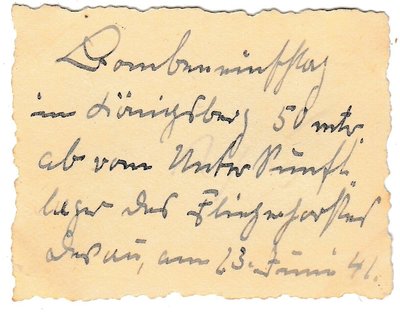 Bombeneinschlag
in Königsberg 50 mtr.
ab vom Unterkunft
lager des Fliegerhorstes
Devau, am 23. Juni 41.